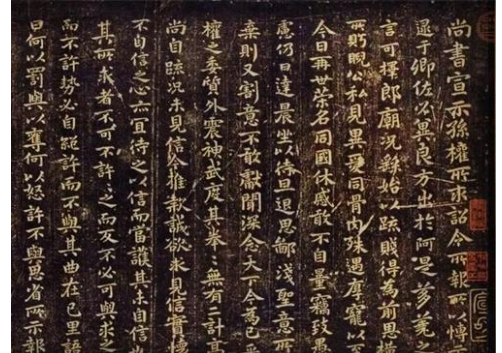 尚書宣示孫權所求詔令所報所以博
逮于卿佐必冀良方出於阿是芻蕘之
言可擇郎廟況繇始以疏賤得為前恩橫
所盱睨公私見異愛同骨肉殊遇厚寵以
今日再世榮名同國休慼敢不自量竊致愚
慮仍日達晨坐以待旦退思鄙淺聖意所
棄則又割意不敢獻聞深念天下今為已平
權之委質外震神武度其拳〻無有二計高
尚自疏況未見信今推款誠欲求見信實懷
不自信之心亦宜待之以信而當護其未自信也
其所求者不可不許〻之而反不必可與求之
而不許勢必自絕許而不與其曲在己里語
曰何以罰與以奪何以怒許不與思省所示報